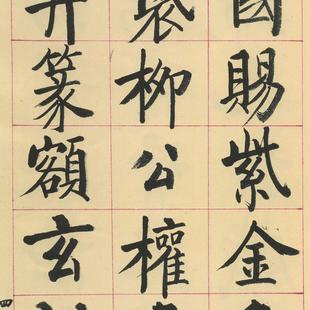 國賜紫金
袋柳公權
并篆額玄
四